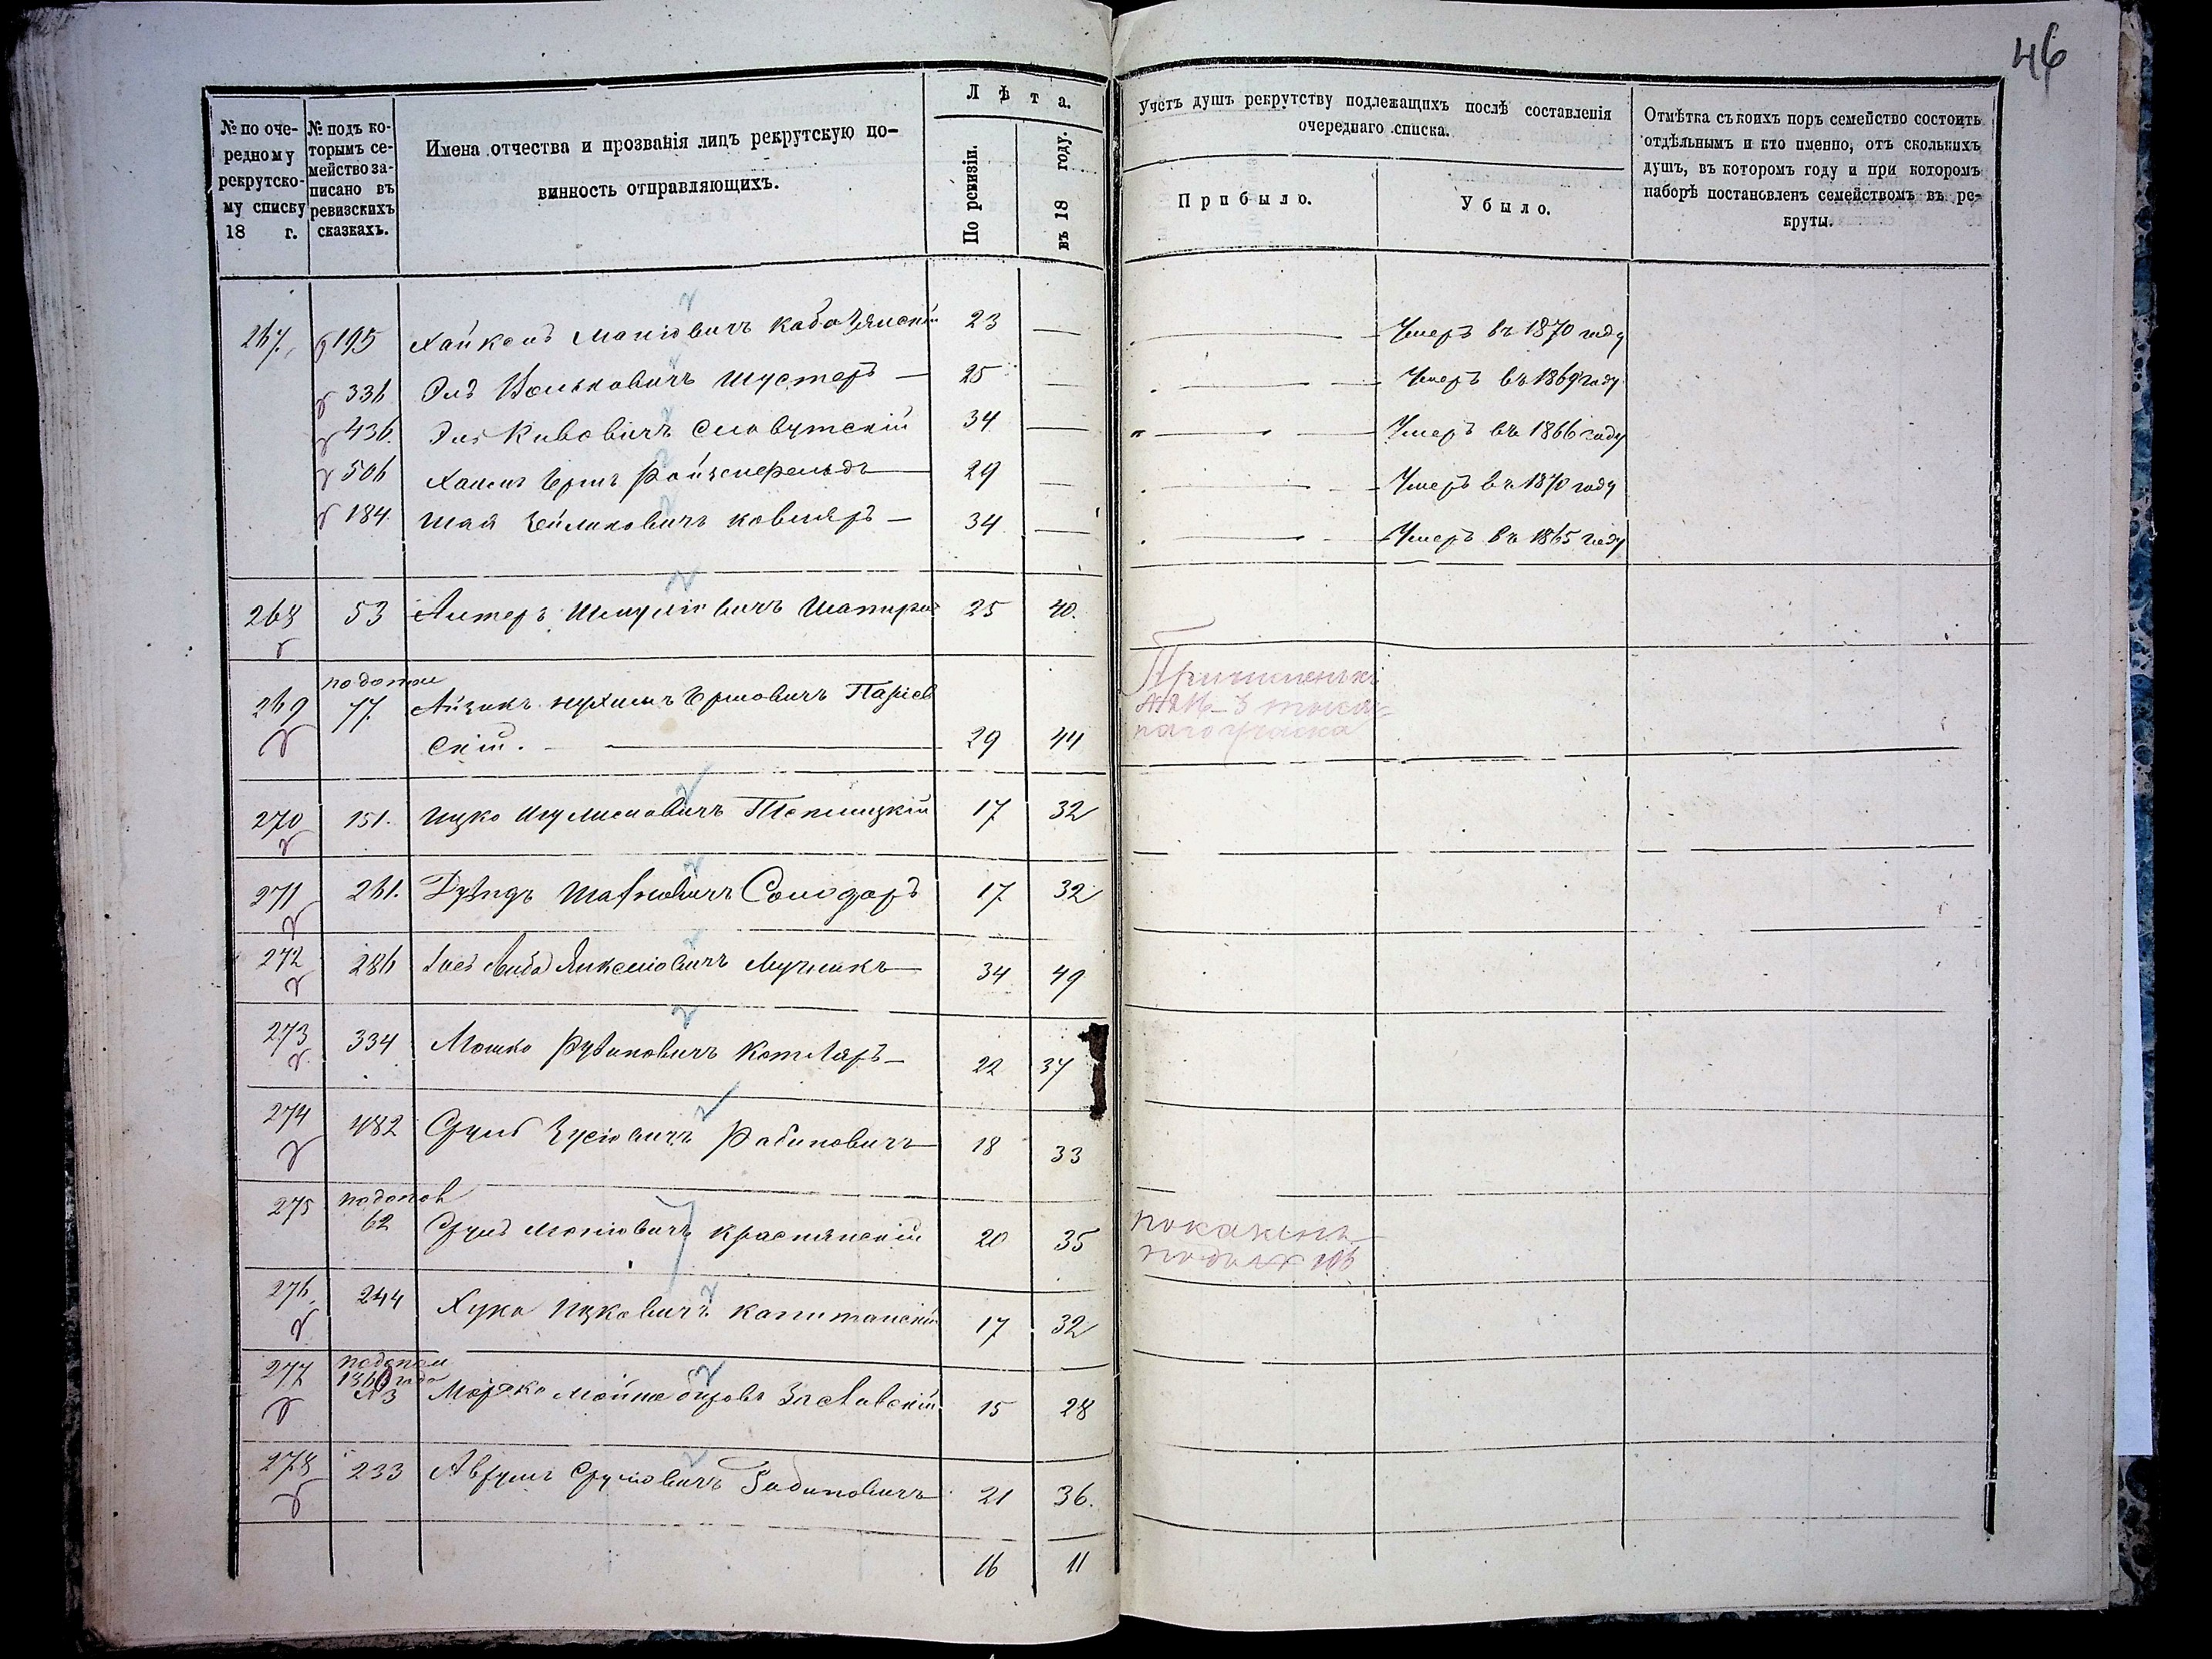 46
№ по оче-
редному
рекрутско-
му списку
18 г.
№ подъ ко-
торымъ се-
мейство за-
писано въ
ревизскихъ
сказкахъ.
Имена отчества и прозванія лицъ рекрутскую по-
винность отправляющихъ.
Лѣта.
По ревизіи.
въ 18 году.
Учетъ душъ рекрутству подлежащихъ послѣ составленія
очереднаго списка.
Прибыло.
Убыло.
Отмѣтка съ коихъ поръ семейство состоитъ
отдѣльнымъ и кто именно, отъ сколькихъ
душъ, въ которомъ году и при которомъ
наборѣ постановленъ семействомъ въ ре-
круты.
267. 195 23 — Умеръ въ 1870 году
336 Эль Вольковичъ Шустеръ — 25 — Умеръ въ 1869 году
436. Эль Кивовичъ Словутскій 34 — Умеръ въ 1866 году
506 Хаимъ Ершъ Ройзенфельдъ — 29 — Умеръ въ 1870 году
184 Шая Зейликовичъ Ковляръ — 34 — Умеръ въ 1865 году
268 53 Алтеръ Шмуліовичъ Шапиро 25 40.
269 по допол
77. Айзикъ Нухимъ Ершовичъ Паріев
скій. — 29 44
270 151. Ицко Теплицкій 17 32
271 261. Солодаръ 17 32
272 286 Мучникъ — 34 49
273 334 Мошко Рувиновичъ Котляръ — 22 37
274 482 Сруль Зусіовичъ Рабиновичъ 18 33
275 по допол
62 Сруль Моніовичъ Краснянскій 20 35 показанъ
подъ № 106
276 244 Хуна Ицковичъ Капитанскій 17 32
277 по допол
1860 года
№ 3 Мордко Заславскій 15 28
278 233 Аврумъ Срулiовичъ Рабиновичъ 21 36.
16 11